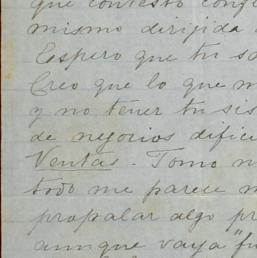 que contesto conf
mismo dirijida
Espero que tu sa
Creo que lo que m
y no tener tu sis
de negocios dificu
Ventas. Tomo n
todo me parece m
propalar algo pr
aunque vaya "fu